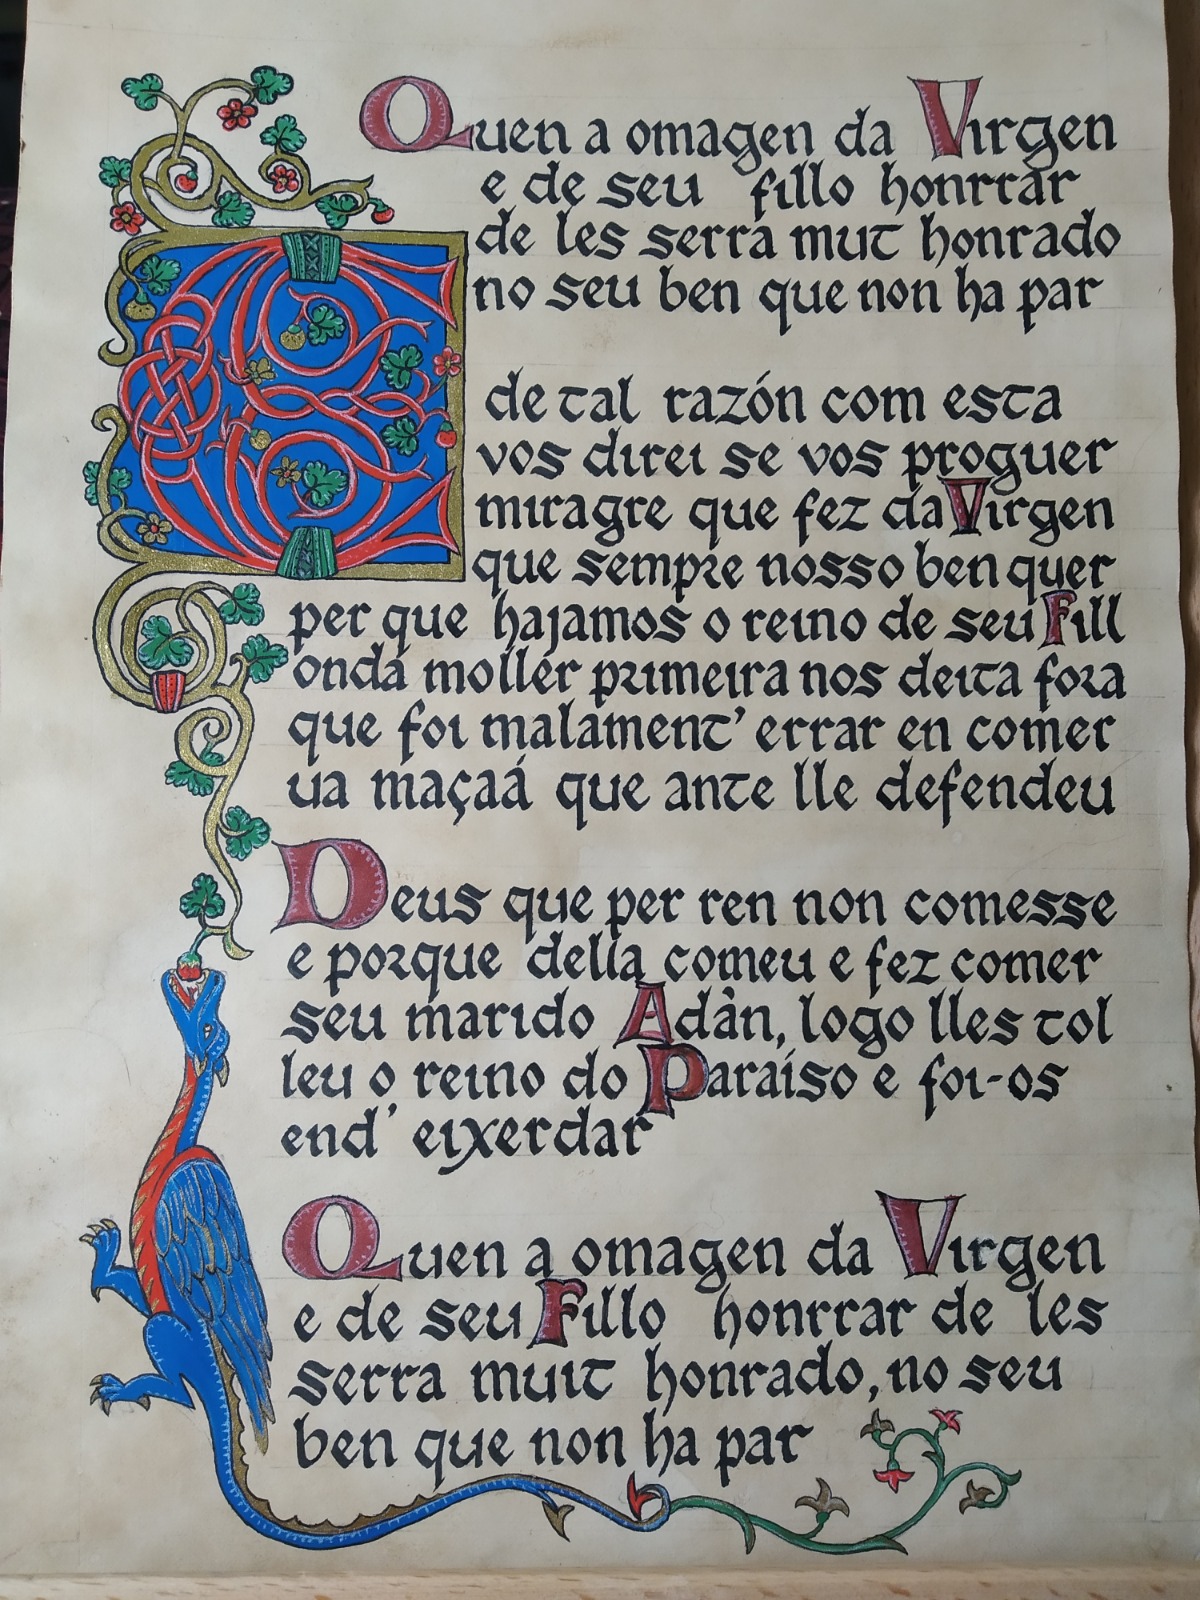 Quen a omagen da Virgen
e de seu fillo honrrar
de les serrá mut honrado
no seu ben que non ha par
E
de tal razón com esta
vos direi se vos proguer
miragre que fez da Virgen
que sempre nosso ben quer
per que hajamos o reino de seu Fill
ondá mollér primeira nos deita fora
que foi malament' errar en comer
ua maçaá que ante lle defendeu
Deus que per ren non comesse
e porque della comeu e fez comer
seu marido Adàn, logo lles tol
leu o reino do Paraíso e foi-os
end' eixerdar
Quen a omagen da Virgen
e de seu Fillo honrrar de les
serra muit honrado, no seu
ben que non ha par